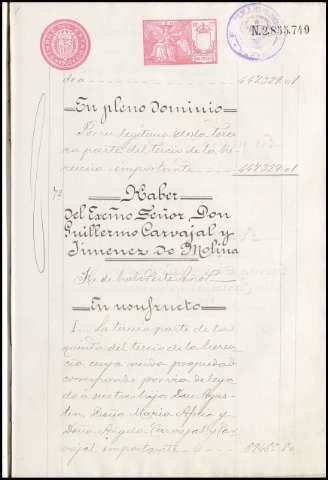 N.2.855.749
de a 447329.01
En pleno dominio
Por su legitima de la tercera
parte del tercio de la he-
rencia importante 447329.01
7º
Haber
del Excmo Señor, Don
Guillermo Carvajal y
Jimenez de Molina
Ha de haber este Señor
En usufructo
1.. La tercera parte de la
quinta del tercio de la heren-
cia cuya nuda propiedad
corresponde por via de lega-
do a sus tres hijos Don Agus-
tin, Doña Maria y
Doña Angela Carvajal y Car-
vajal importante